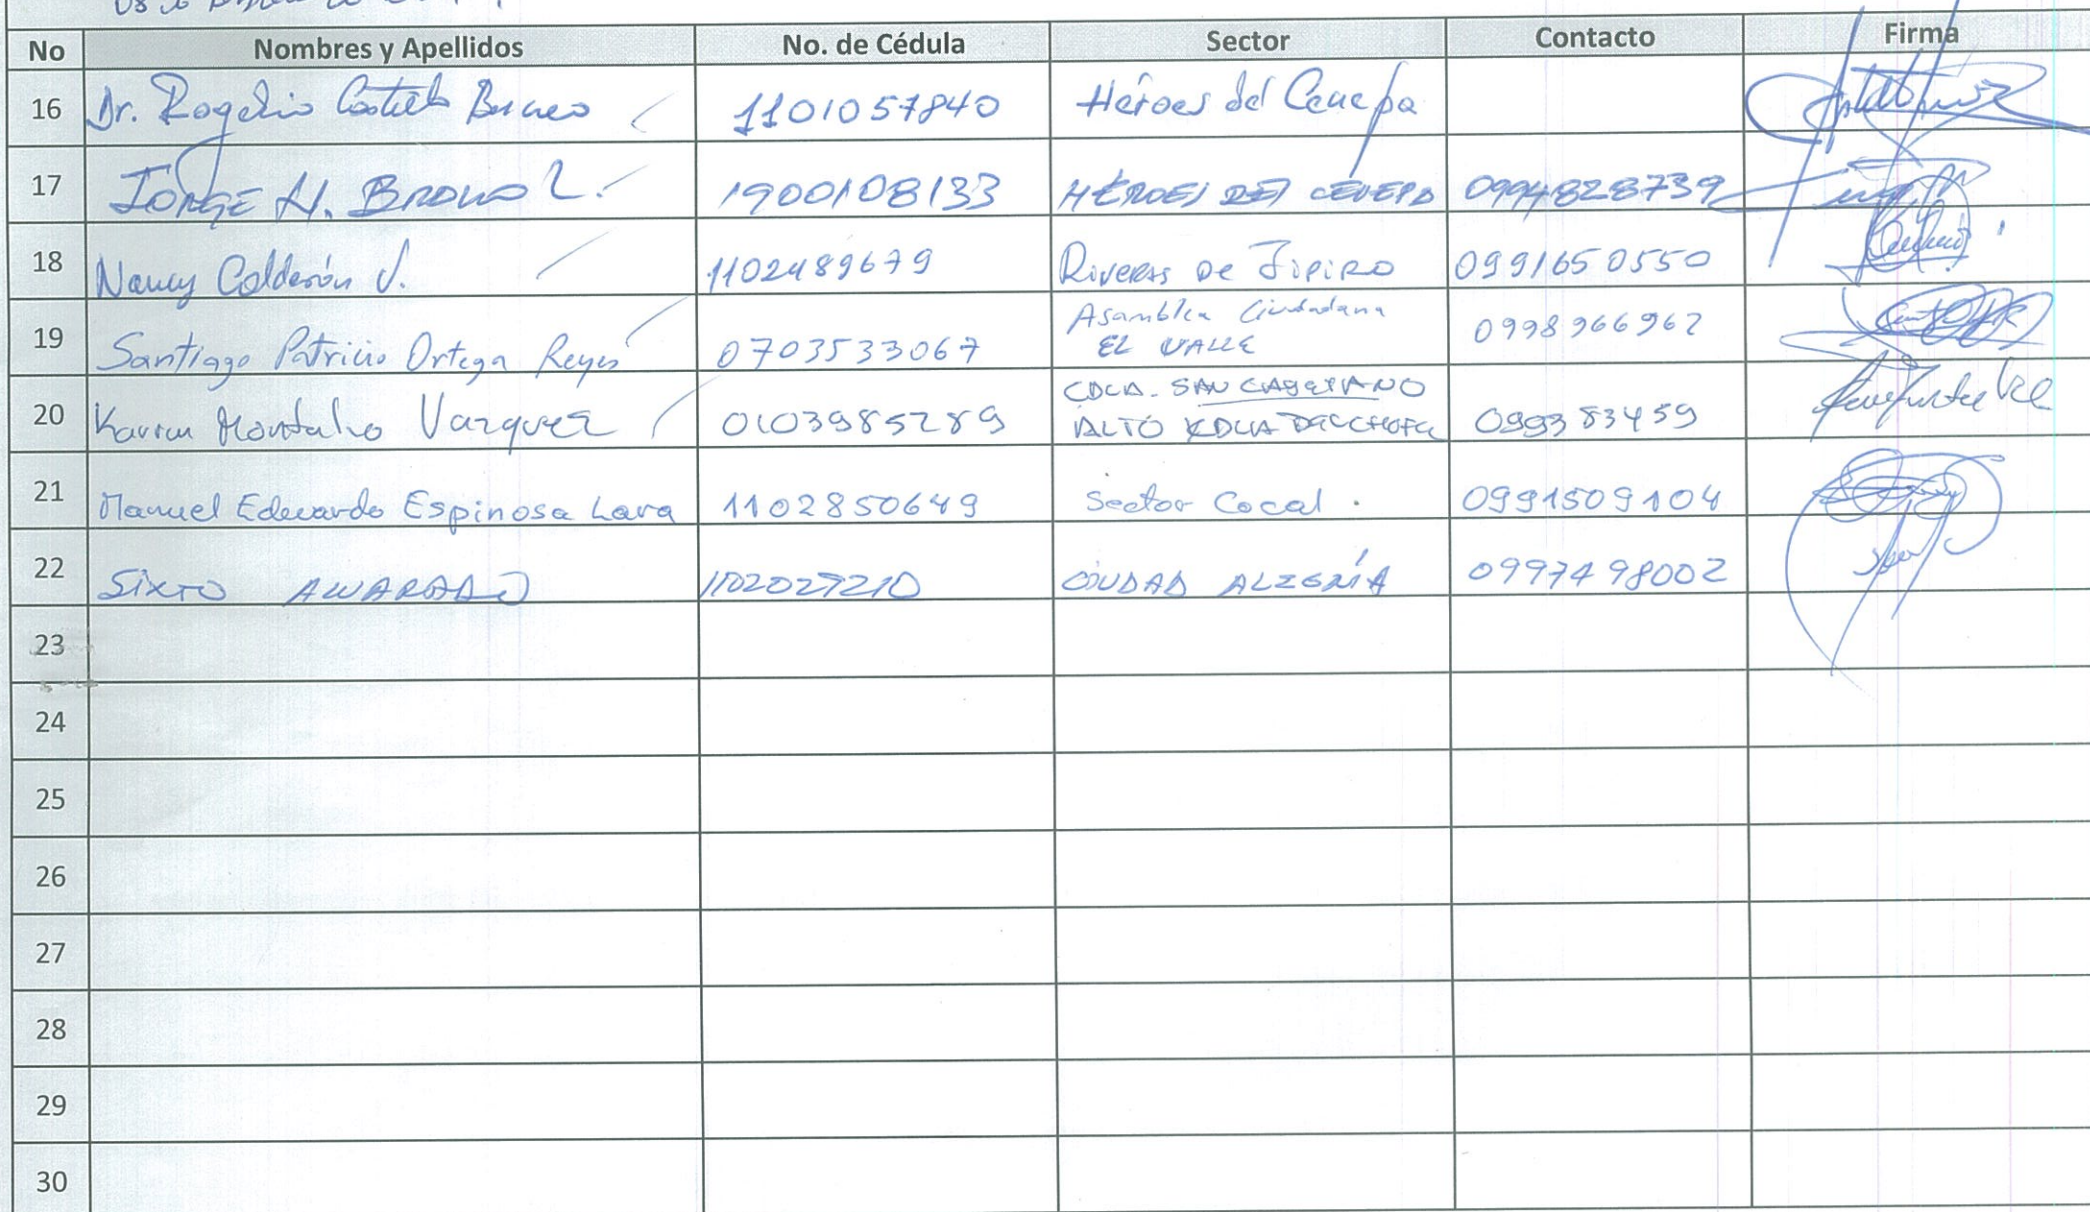 No Nombres y Apellidos No. de Cédula Sector Contacto Firma
16 Dr. Rogelio Castillo 1101057840 Héroes del Cenepa
17 JORGE H. 1900108133 HÉROES DEL CENEPA 0994828739
18 Nancy Calderón J. 1102489679 Riveras de Jipiro 0991650550
19 Santiago Patricio Ortega Reyes 0703533067 Asamblea Ciudadana EL VALLE 0998966962
20 Karen Montalvo Vazquez 0103985289 CDLA. SAN CAYETANO ALTO 099383459
21 Manuel Eduardo Espinosa Lara 1102850649 Sector Cocal. 0991509104
22 SIXTO ALVARADO 1102027210 CIUDAD ALEGRÍA 0997498002
23
24
25
26
27
28
29
30